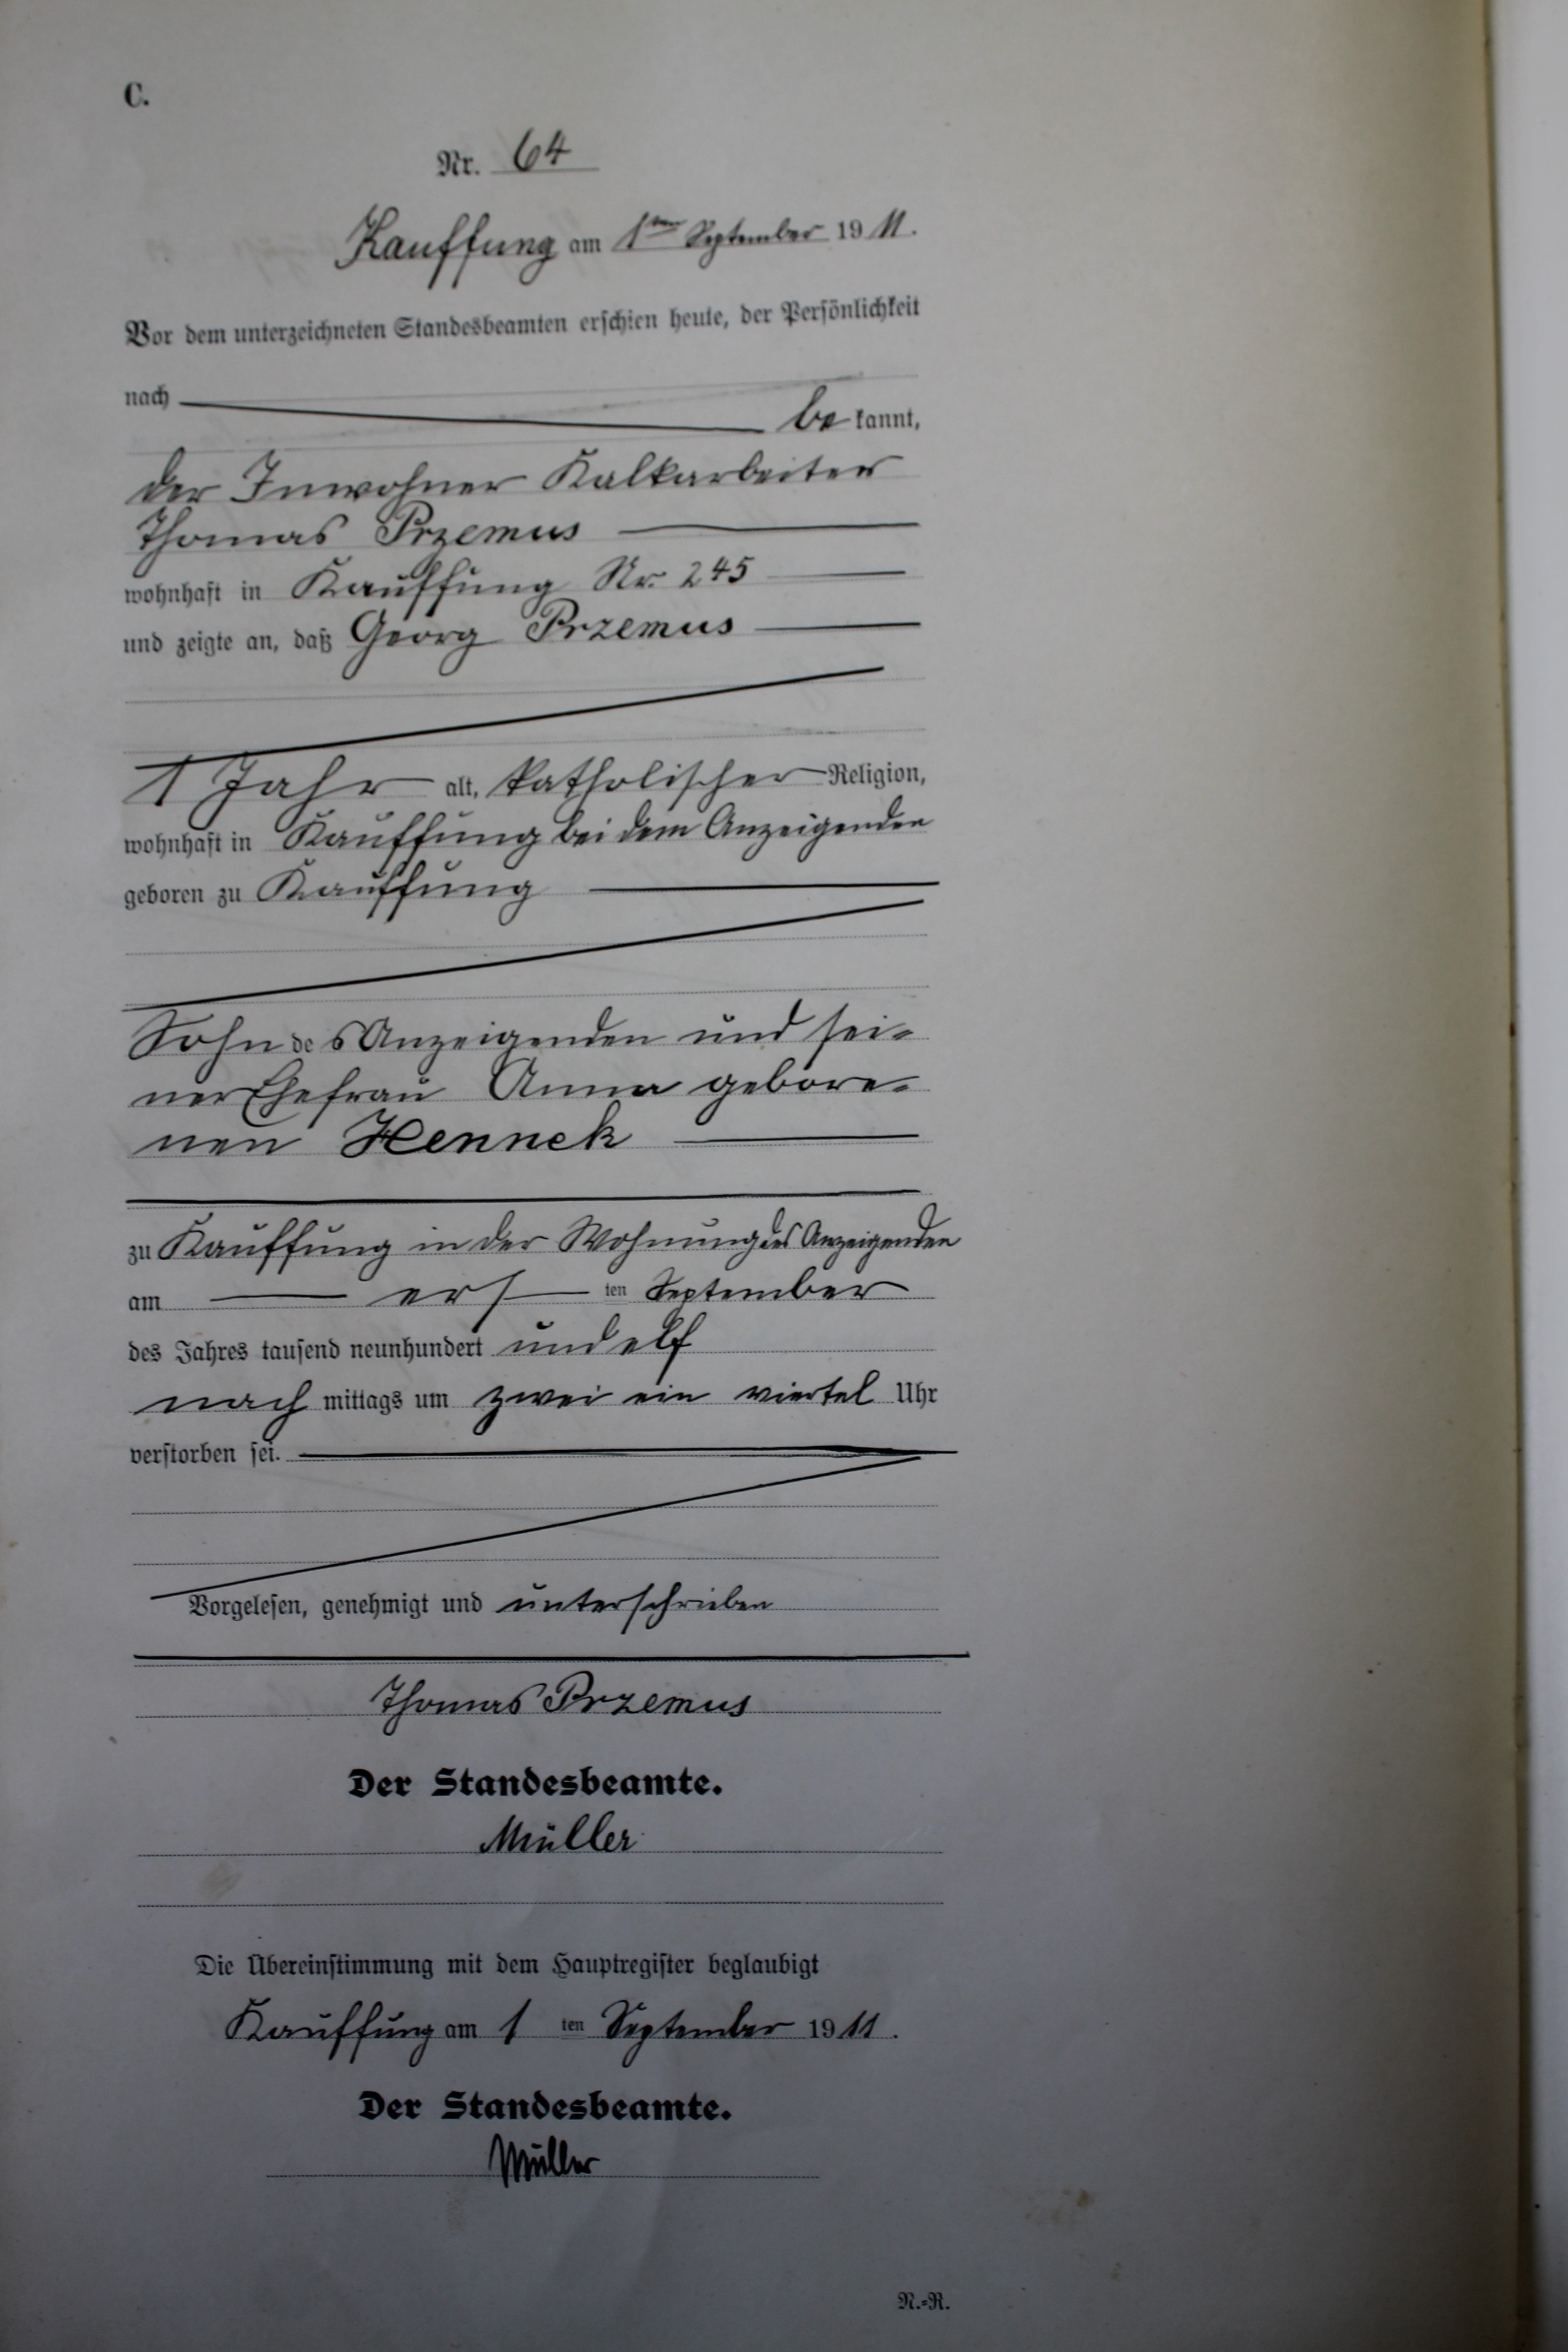 C.
Nr. 64
Kauffung am 1ten September 1911.
Vor dem unterzeichneten Standesbeamten erschien heute, der Persönlichkeit
nach bekannt,
der Inwohner Kalkarbeiter
Thomas Przemus
wohnhaft in Kauffung Nr. 245
und zeigte an, daß Georg Przemus
1 Jahr alt, katholischer Religion,
wohnhaft in Kauffung bei dem Anzeigenden
geboren zu Kauffung
Sohn des Anzeigenden und sei-
ner Ehefrau Anna gebore-
nen Hennek
zu Kauffung in der Wohnung des Anzeigenden
am ersten September
des Jahres tausend neunhundert und elf
nachmittags um zwei ein viertel Uhr
verstorben sei.
Vorgelesen, genehmigt und unterschrieben
Thomas Przemus
Der Standesbeamte.
Müller
Die Übereinstimmung mit dem Hauptregister beglaubigt
Kauffung am 1ten September 1911.
Der Standesbeamte.
Müller
N.-R.